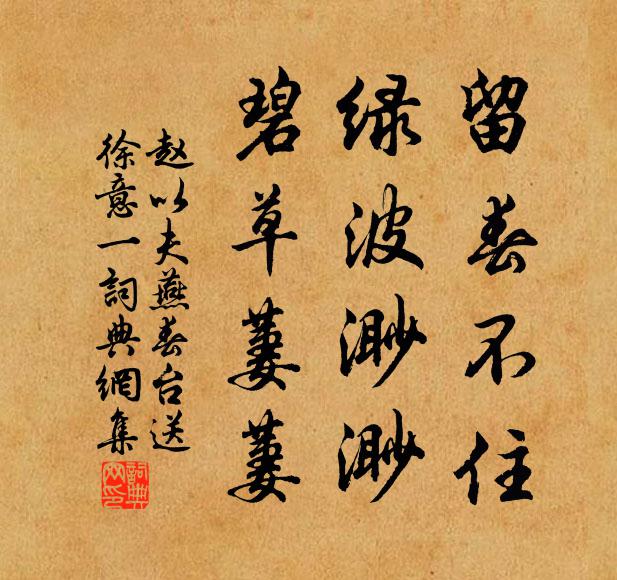 留春不住
绿波渺渺
碧草萋萋
赵以夫燕春台送
徐意一詞典網集
詞典
网印